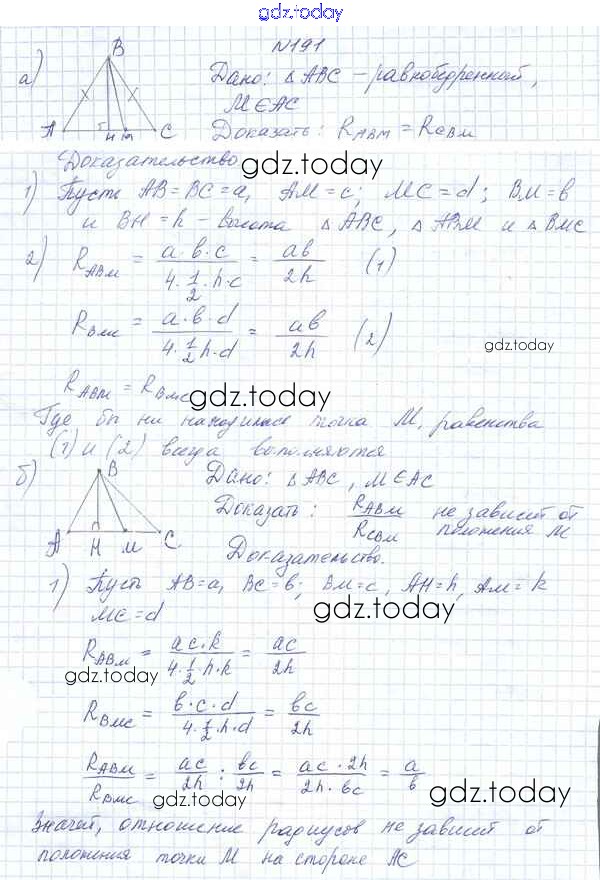 gdz.today
№191
а) B
Дано: △ABC – равнобедренный,
M∈AC
A H M C
Доказать: R_ABM = R_CBM
Доказательство
gdz.today
1) Пусть AB=BC=a, AM=c; MC=d; BM=b
и BH=h – высота △ABC, △ABM и △BMC
2) R_ABM = a·b·c / 4·1/2·h·c = ab / 2h (1)
R_BMC = a·b·d / 4·1/2 h·d = ab / 2h (2)
gdz.today
R_ABM = R_BMC
gdz.today
Где бы ни находилась точка M, равенства
(1) и (2) всегда выполняются
б) B
Дано: △ABC, M∈AC
Доказать: R_ABM / R_CBM не зависит от
положения M
A H M C
Доказательство.
1) Пусть AB=a, BC=b; BM=c, AH=h, AM=k
MC=d
gdz.today
R_ABM = ac·k / 4·1/2·h·k = ac / 2h
gdz.today
R_BMC = b·c·d / 4·1/2·h·d = bc / 2h
R_ABM / R_BMC = ac / 2h : bc / 2h = ac·2h / 2h·bc = a / b
gdz.today
gdz.today
Значит, отношение радиусов не зависит от
положения точки M на стороне AC